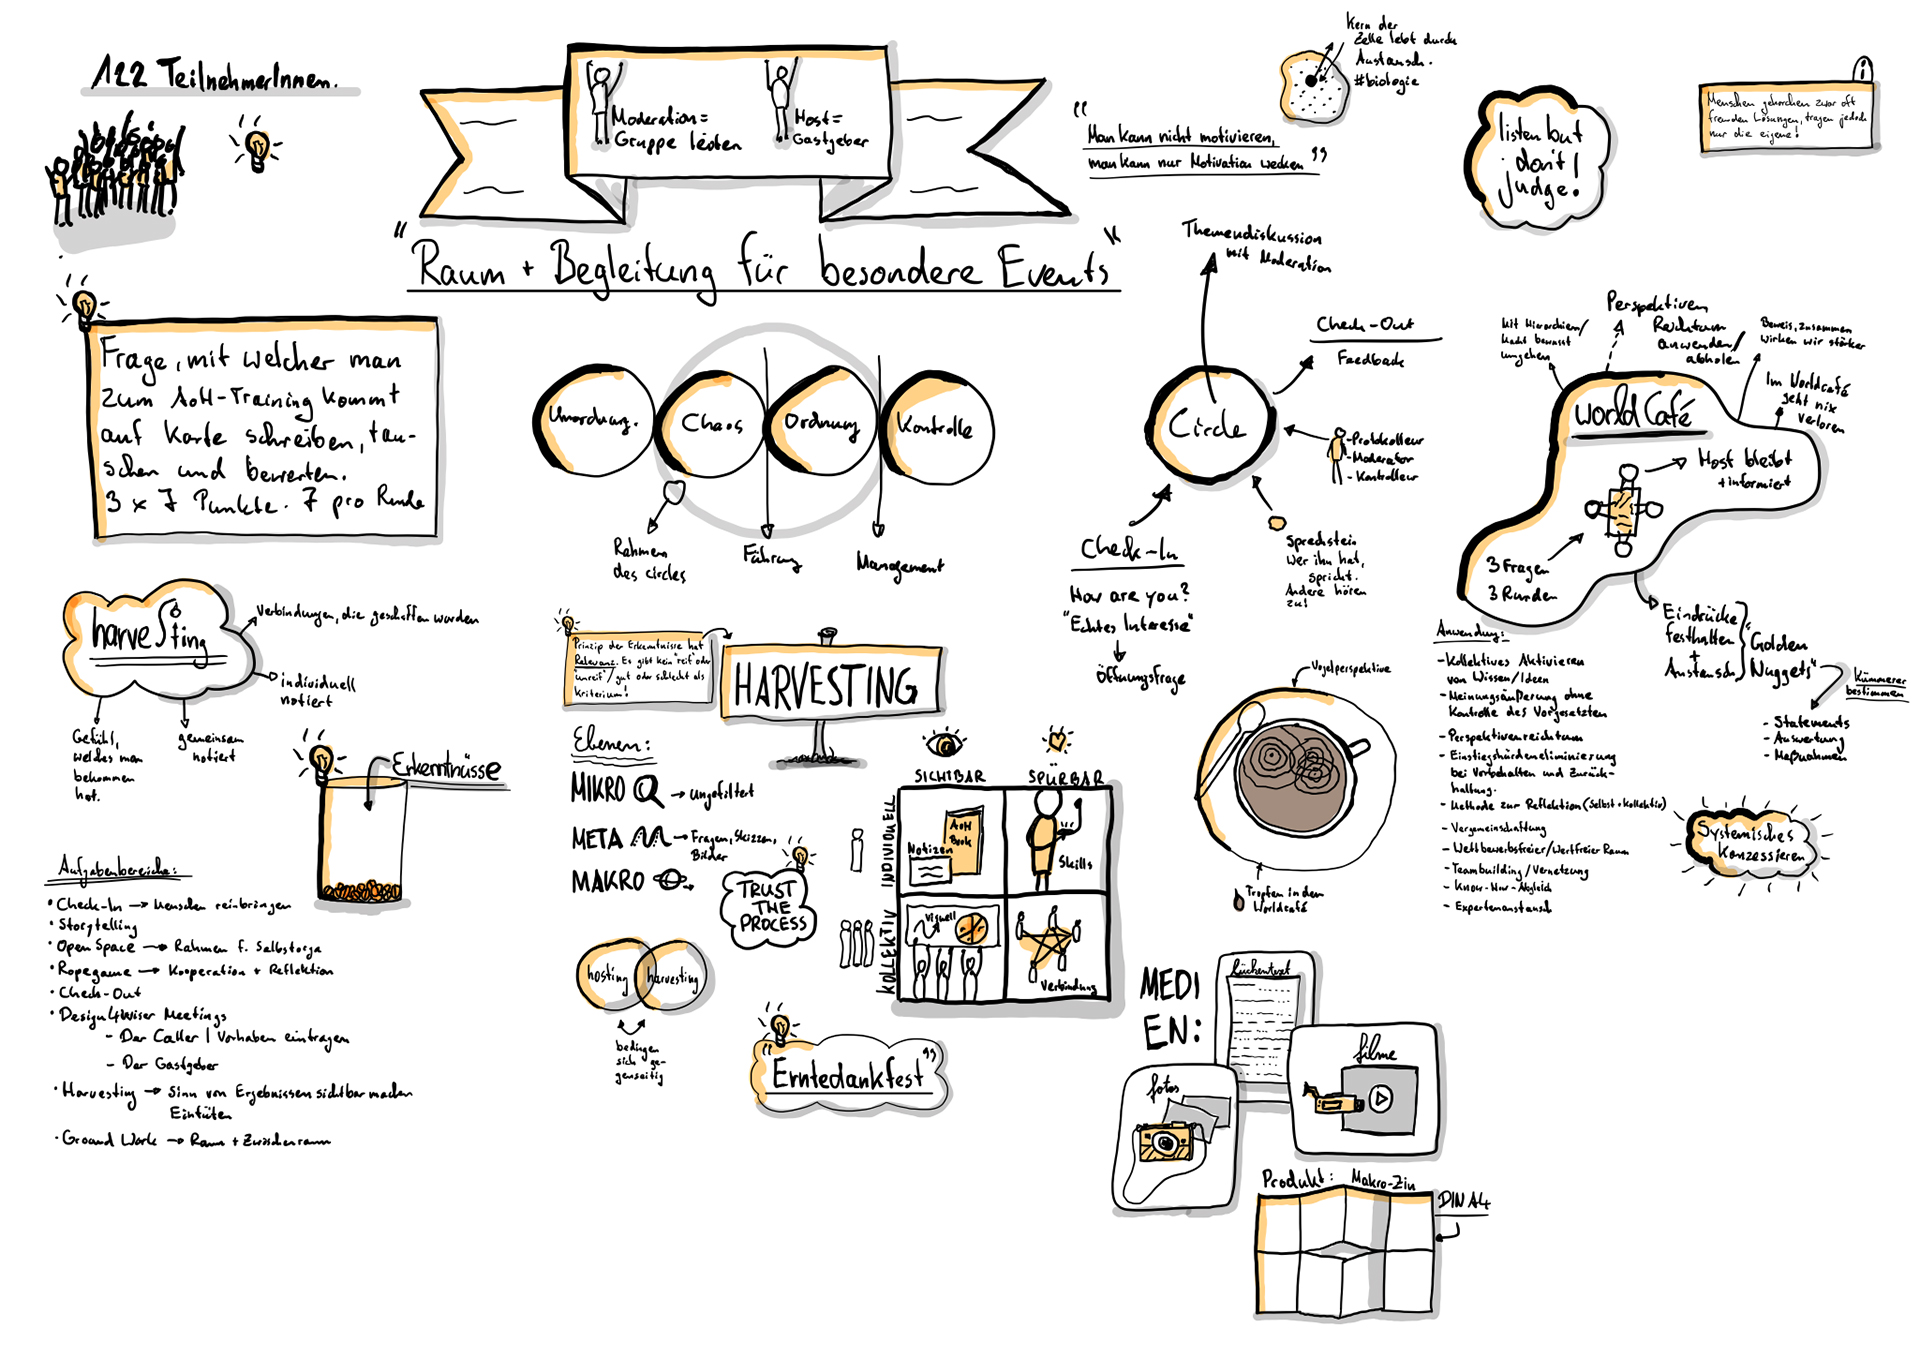 122 TeilnehmerInnen.
Moderation=
Gruppe leiten
Host=
Gastgeber
"Raum + Begleitung für besondere Events"
"Man kann nicht motivieren,
man kann nur Motivation wecken"
Kern der
Zelle lebt durch
Austausch.
#biologie
listen but
don't
judge!
i
Menschen gehorchen zwar oft
fremden Lösungen, tragen jedoch
nur die eigene!
Frage, mit welcher man
zum AoH-Training kommt
auf Karte schreiben, tau-
schen und bewerten.
3 x 7 Punkte. 7 pro Runde
Unordnung.
Chaos
Ordnung
Kontrolle
Rahmen
des circles
Führung
Management
Themendiskussion
mit Moderation
Check-Out
Feedback
Circle
-Protokolleur
-Moderator
-Kontrolleur
Check-In
How are you?
"Echtes Interesse"
Öffnungsfrage
Sprechstein
Wer ihn hat,
spricht.
Andere hören
zu!
Mit Hierarchien/
Macht bewusst
umgehen
Perspektiven
Reichtum
anwenden/
abholen
Beweis, zusammen
wirken wir stärker
Im Worldcafé
geht nix
verloren
world Café
Host bleibt
+informiert
3 Fragen
3 Runden
Eindrücke
festhalten
+
Austausch
"Golden
Nuggets"
Kümmerer
bestimmen
- Statements
- Auswertung
- Maßnahmen
Anwendung:
-Kollektives Aktivieren
von Wissen/Ideen
-Meinungsäußerung ohne
Kontrolle des Vorgesetzten
-Perspektivenreichtum
-Einstiegshürdeneliminierung
bei Vorbehalten und Zurück-
haltung.
-Methode zur Reflektion (Selbst+kollektiv)
- Vergemeinschaftung
- Wettbewerbsfreier/Wertfreier Raum
- Teambuilding/Vernetzung
- Know-How-Abgleich
- Expertenaustausch
Systemisches
Konzessieren
harvesting
Verbindungen, die geschaffen wurden
individuell
notiert
Gefühl,
welches man
bekommen
hat.
gemeinsam
notiert
Erkenntnisse
Aufgabenbereiche:
• Check-In → Menschen reinbringen
• Storytelling
• Open Space → Rahmen f. Selbstorga
• Ropegame → Kooperation + Reflektion
• Check-Out
• Design4Wiser Meetings
- Der Caller / Vorhaben eintragen
- Der Gastgeber
• Harvesting → Sinn von Ergebnissen sichtbar machen
Eintüten
• Ground Work → Raum + Zwischenraum
Prinzip der Erkenntnisse hat
Relevanz. Es gibt kein "reif oder
"unreif"/gut oder schlecht als
Kriterium!
HARVESTING
Ebenen:
MIKRO → ungefiltert
META → Fragen, Skizzen,
Bilder
MAKRO
TRUST
THE
PROCESS
hosting
harvesting
bedingen
sich ge-
genseitig
"Erntedankfest"
SICHTBAR
SPÜRBAR
INDIVIDUELL
KOLLEKTIV
AoH
Book
Notizen
Skills
Visuell
Verbindung
Vogelperspektive
Tropfen in dem
Worldcafé
MEDI
EN:
lückentext
filme
fotos
Produkt: Makro-Zin
DIN A4